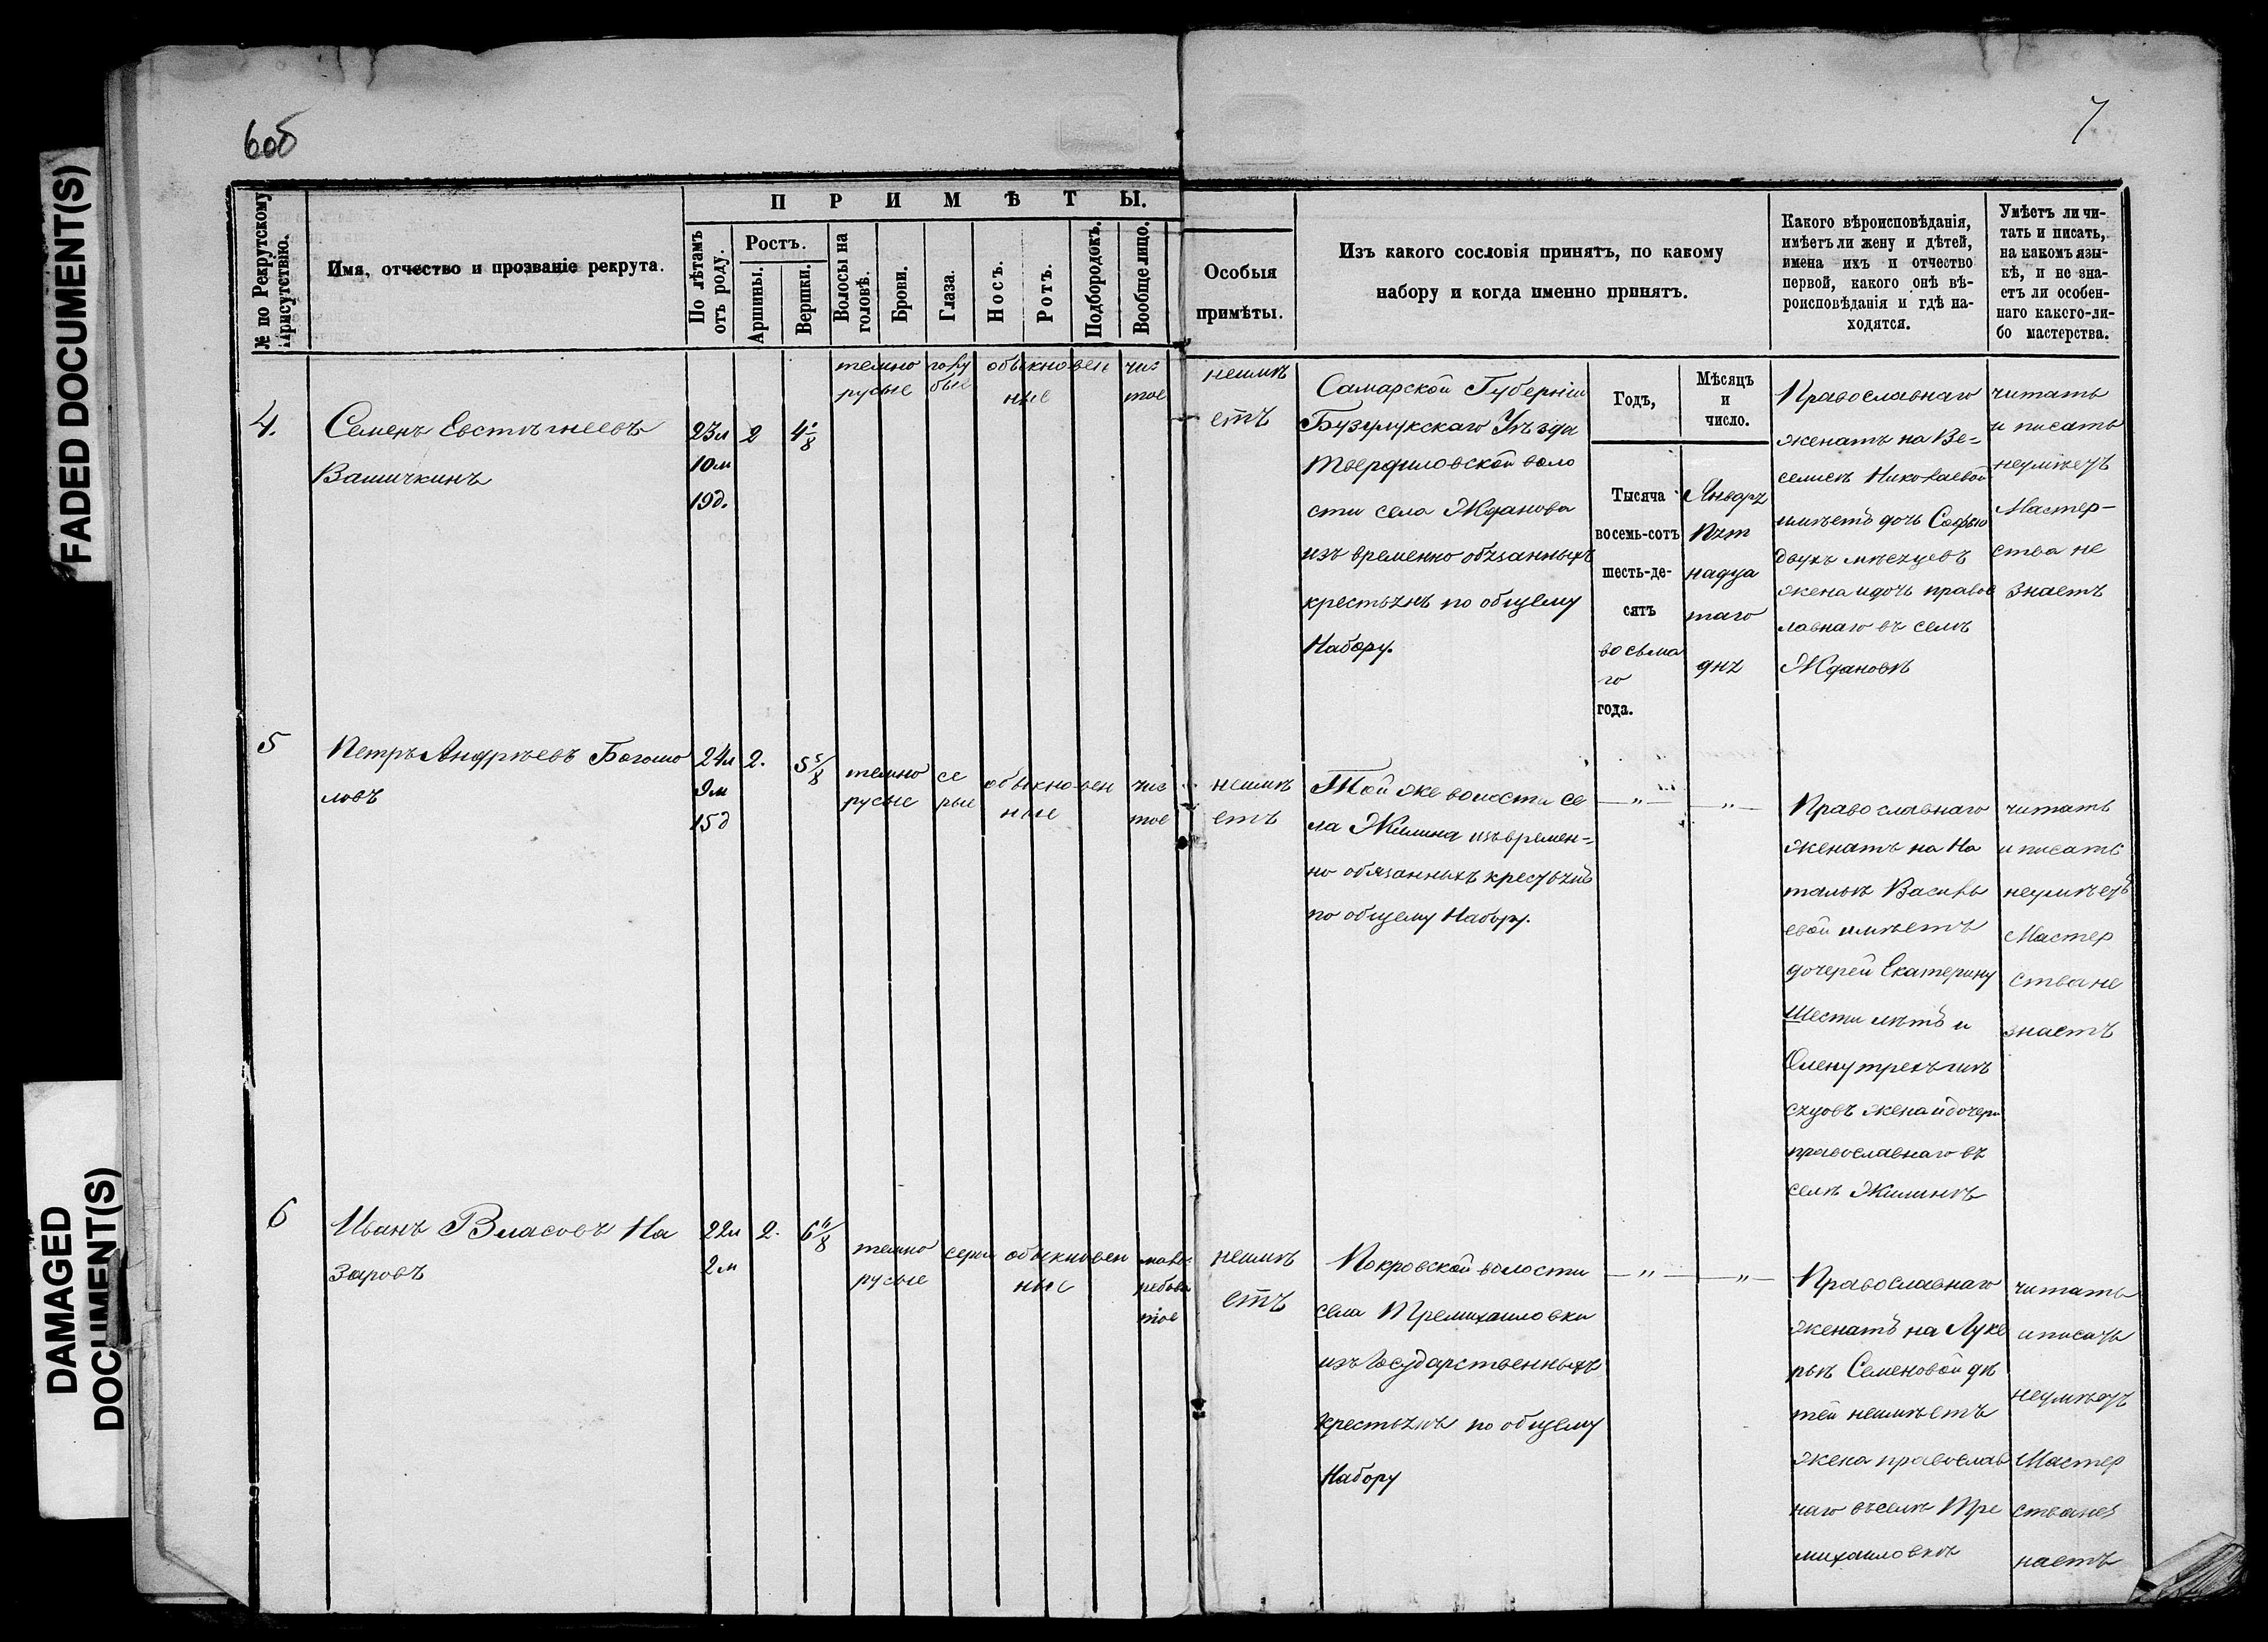 FADED DOCUMENT(S)
DAMAGED
DOCUMENT(S)
6об
7
№ по Рекрутскому
присутствію.
Имя, отчество и прозваніе рекрута.
ПРИМѢТЫ.
По лѣтамъ
отъ роду.
Ростъ.
Аршины.
Вершки.
Волосы на
головѣ.
Брови.
Глаза.
Носъ.
Ротъ.
Подбородокъ.
Вообще лицо.
Особыя
примѣты.
Изъ какого сословія принятъ, по какому
набору и когда именно принятъ.
Какого вѣроисповѣданія,
имѣетъ ли жену и дѣтей,
имена ихъ и отчество
первой, какого онѣ вѣ-
роисповѣданія и гдѣ на-
ходятся.
Умѣетъ ли чи-
тать и писать,
на какомъ язы-
кѣ, и не зна-
етъ ли особен-
наго какого-ли-
бо мастерства.
4.
Семенъ Евстигнеевъ
Вашичкинъ
23л
10м
19д.
2
4
темно
русые
голу
бые
обыкновен
ные
чис
тое
неимѣ
етъ
Самарской Губерніи
Бузулукскаго Уѣзда
Твердиловской воло
сти села Жданова
изъ временно обязанныхъ
крестьянъ по общему
Набору.
Годъ,
Тысяча
восемь-сотъ
шесть-де-
сятъ
восьма
го
года.
Мѣсяцъ
и
число.
Января
Пят
надца
таго
дня
Православнаго
женатъ на Ве-
селиѣ Николаевой
имѣетъ дочь Софью
двухъ мѣсяцевъ
жена и дочь правос
лавнаго въ селѣ
Ждановѣ
читать
и писать
неумѣетъ
Мастер-
ства не
знаетъ
5
Петръ Андрѣевъ Богомо
ловъ
24л
9м
15д
2.
5 5/8
темно
русые
се
рые
обыкновен
ные
чис
тое
неимѣ
етъ
Той же волости се
ла Жилина изъ времен-
но обязанныхъ крестьянъ
по общему Набору.
— „ —
— „ —
Православнаго
женатъ на На
тальѣ Василь
евой имѣетъ
дочерей Екатерину
Шести лѣтъ и
Олену трехъ мѣ
сяцовъ жена и дочери
православнаго въ
селѣ Жилинѣ
читать
и писать
неумѣетъ
Мастер
ства не
знаетъ
6
Иванъ Власовъ На
заровъ
22л
2м
2.
6 6/8
темно
русые
серы
обыкновен
ные
мало
рябова
тое
неимѣ
етъ
Покровской волости
села Тремихаиловки
изъ Государственныхъ
крестьянъ по общему
Набору
— „ —
— „ —
Православнаго
женатъ на Луке
рьѣ Семеновой дѣ
тей неимѣетъ
жена православ
наго въ селѣ Тре
михаиловкѣ
читать
и писать
неумѣетъ
Мастер
ства не з
наетъ